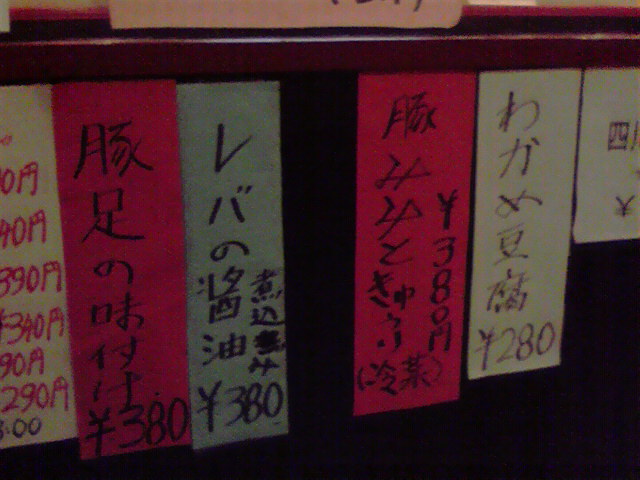 四
¥
わかめ豆腐
¥280
豚みみと
¥380円
(冷菜)
レバの醤油
煮込み
¥380
豚足の味付け
¥380
0円
40円
390円
¥340円
90円
290円
:00